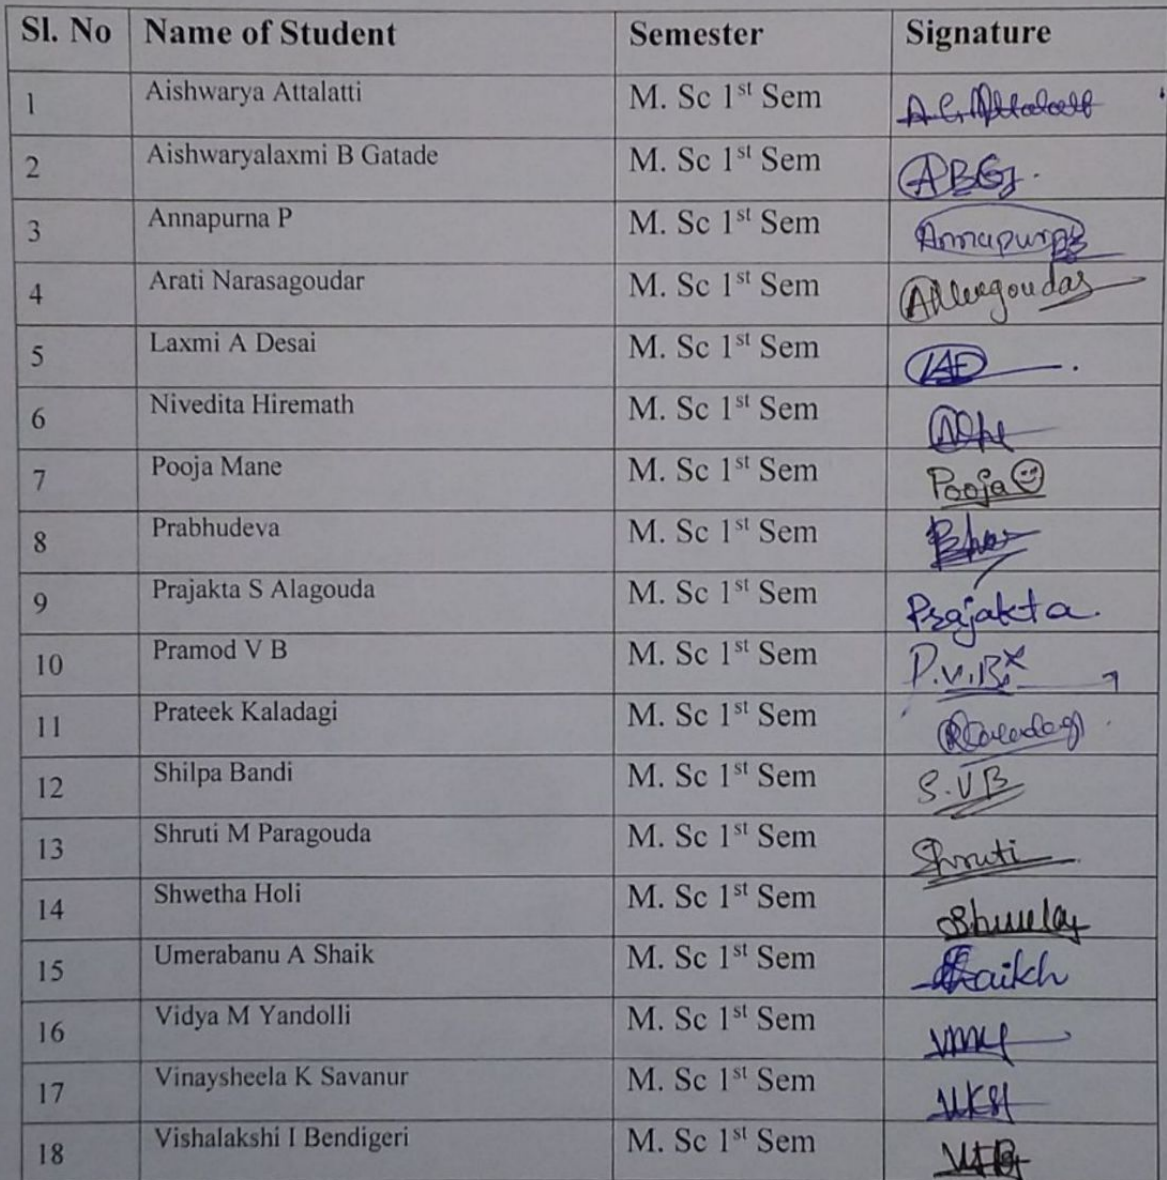 Sl. No Name of Student Semester Signature
1 Aishwarya Attalatti M. Sc 1st Sem
2 Aishwaryalaxmi B Gatade M. Sc 1st Sem ABG.
3 Annapurna P M. Sc 1st Sem Annapurna
4 Arati Narasagoudar M. Sc 1st Sem
5 Laxmi A Desai M. Sc 1st Sem LAD
6 Nivedita Hiremath M. Sc 1st Sem
7 Pooja Mane M. Sc 1st Sem Pooja
8 Prabhudeva M. Sc 1st Sem
9 Prajakta S Alagouda M. Sc 1st Sem Prajakta.
10 Pramod V B M. Sc 1st Sem P.V.B
11 Prateek Kaladagi M. Sc 1st Sem
12 Shilpa Bandi M. Sc 1st Sem S.VB
13 Shruti M Paragouda M. Sc 1st Sem Shruti
14 Shwetha Holi M. Sc 1st Sem
15 Umerabanu A Shaik M. Sc 1st Sem Shaikh
16 Vidya M Yandolli M. Sc 1st Sem VMY
17 Vinaysheela K Savanur M. Sc 1st Sem
18 Vishalakshi I Bendigeri M. Sc 1st Sem